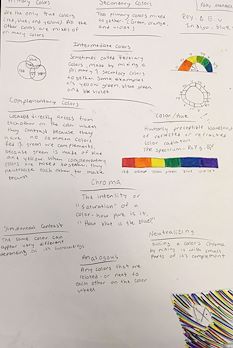 Primary Colors
are the only true colors
(red, blue, and yellow). All the
other colors are mixes of
primary colors
Secondary Colors
Two primary colors mixed
together: Green, orange,
and violet
Roy, G. B. V
Intermediate Colors
Sometimes called tertiary
colors, made by mixing a
primary & secondary colors
together. Some examples
are yellow green, blue green,
and blue violet
Complementary Colors
Located directly across from
each other on the color wheel
they contrast because they
have no common colors.
Red & green are complements
because green is made of blue
and yellow. When complementary
colors are mixed together, they
neutralize each other to make
brown
Color/Hue
Humanly perceptible wavelengths
of reflected or refracted
color radiation.
The spectrum: Roy g. bv
Chroma
The intensity or
"saturation" of a
color - how pure is it.
"How blue is the blue?"
Simultaneous Contrast
The same color can
appear very different
depending on its surroundings
Neutralizing
a color's chroma
by mixing it with small
parts of its complement
Analogous
Any colors that are
related - or next to
each other on the color
wheel